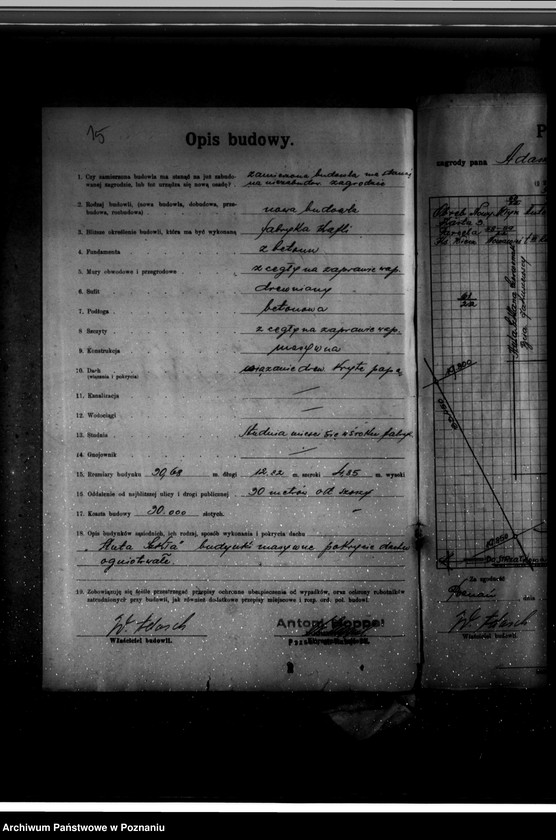 15
Opis budowy.
1. Czy zamierzona budowla ma stanąć na już zabudo-
wanej zagrodzie, lub też urządza się nową osadę?
zamierzona budowla ma stanąć
na niezabudow. zagrodzie
2. Rodzaj budowli, (nowa budowla, dobudowa, prze-
budowa, rozbudowa)
nowa budowla
3. Bliższe określenie budowli, która ma być wykonana
fabryka kafli
4. Fundamenta z betonu
5. Mury obwodowe i przegrodowe z cegły na zaprawie wap.
6. Sufit drewniany
7. Podłoga betonowa
8 Szczyty z cegły na zaprawie wap.
9. Konstrukcja masywna
10. Dach wiązanie drew. kryte papą
(wiązania i pokrycia)
11. Kanalizacja —
12. Wodociągi —
13. Studnia Studnia mieści się w środku fabryk.
14. Gnojownik —
15. Rozmiary budynku 39,68 m. długi 12.02 m. szeroki 4.35 m. wysoki
16. Oddalenie od najbliższej ulicy i drogi publicznej 30 metrów od szosy
17. Koszta budowy 30.000 złotych. —
18. Opis budynków sąsiednich, ich rodzaj, sposób wykonania i pokrycia dachu
„Huta Szkła" budynki masywne pokrycie dachu
ogniotrwałe.
19. Zobowiązuję się ściśle przestrzegać przepisy ochronne ubezpieczenia od wypadków, oraz ochrony robotników
zatrudnionych przy budowli, jak również dodatkowe przepisy miejscowe i rozp. ord. pol. budowl.
W. Adasch
Właściciel budowli.
Antoni Hoppel
P
zagrody pana Adam
Obręb Nowy Młyn
Karta 3
Parcela
Huta Szkła
19,850
Za zgodność
Poznań, dnia
W. Adasch
Właściciel budowli.
Archiwum Państwowe w Poznaniu